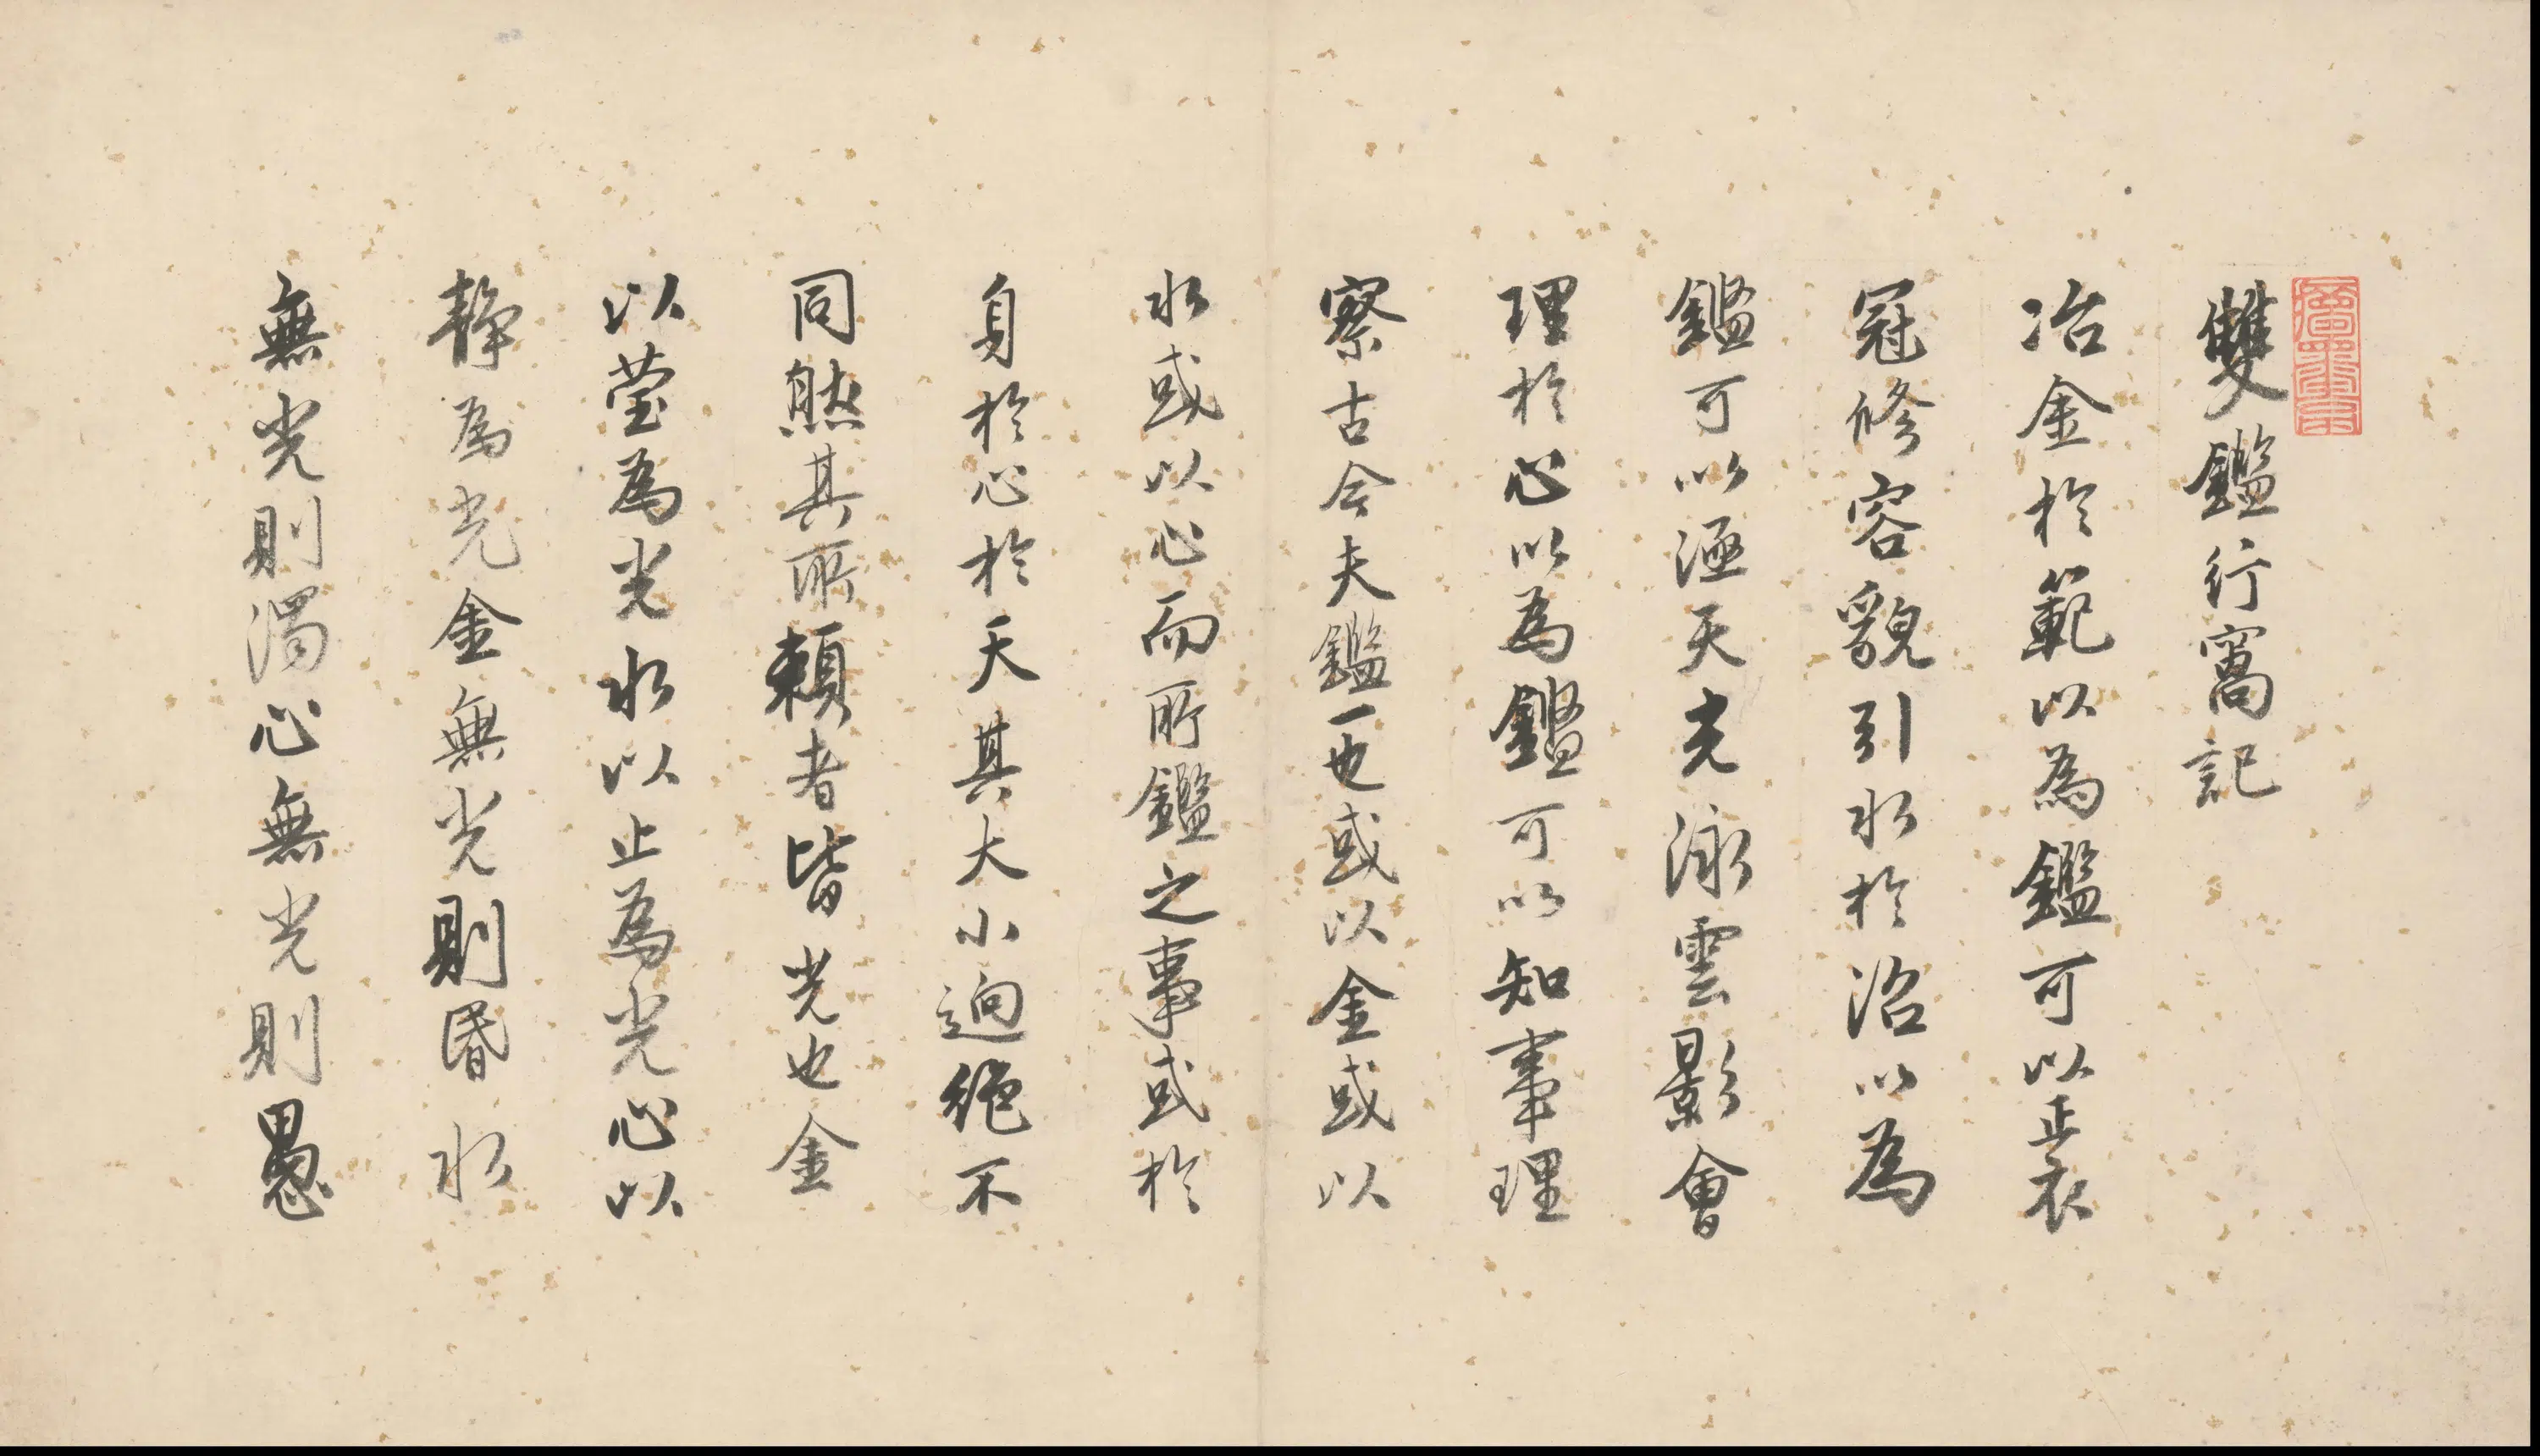 雙鑑行窩記
冶金於範以為鑑可以正衣
冠修容貌引水於沼以為
鑑可以涵天光泳雲影會
理於心以為鑑可以知事理
察古今夫鑑一也或以金或以
水或以心而所鑑之事或於
身於心於天其大小迥絶不
同然其所賴者皆光也金
以瑩為光水以止為光心以
靜為光金無光則昬水
無光則濁心無光則愚